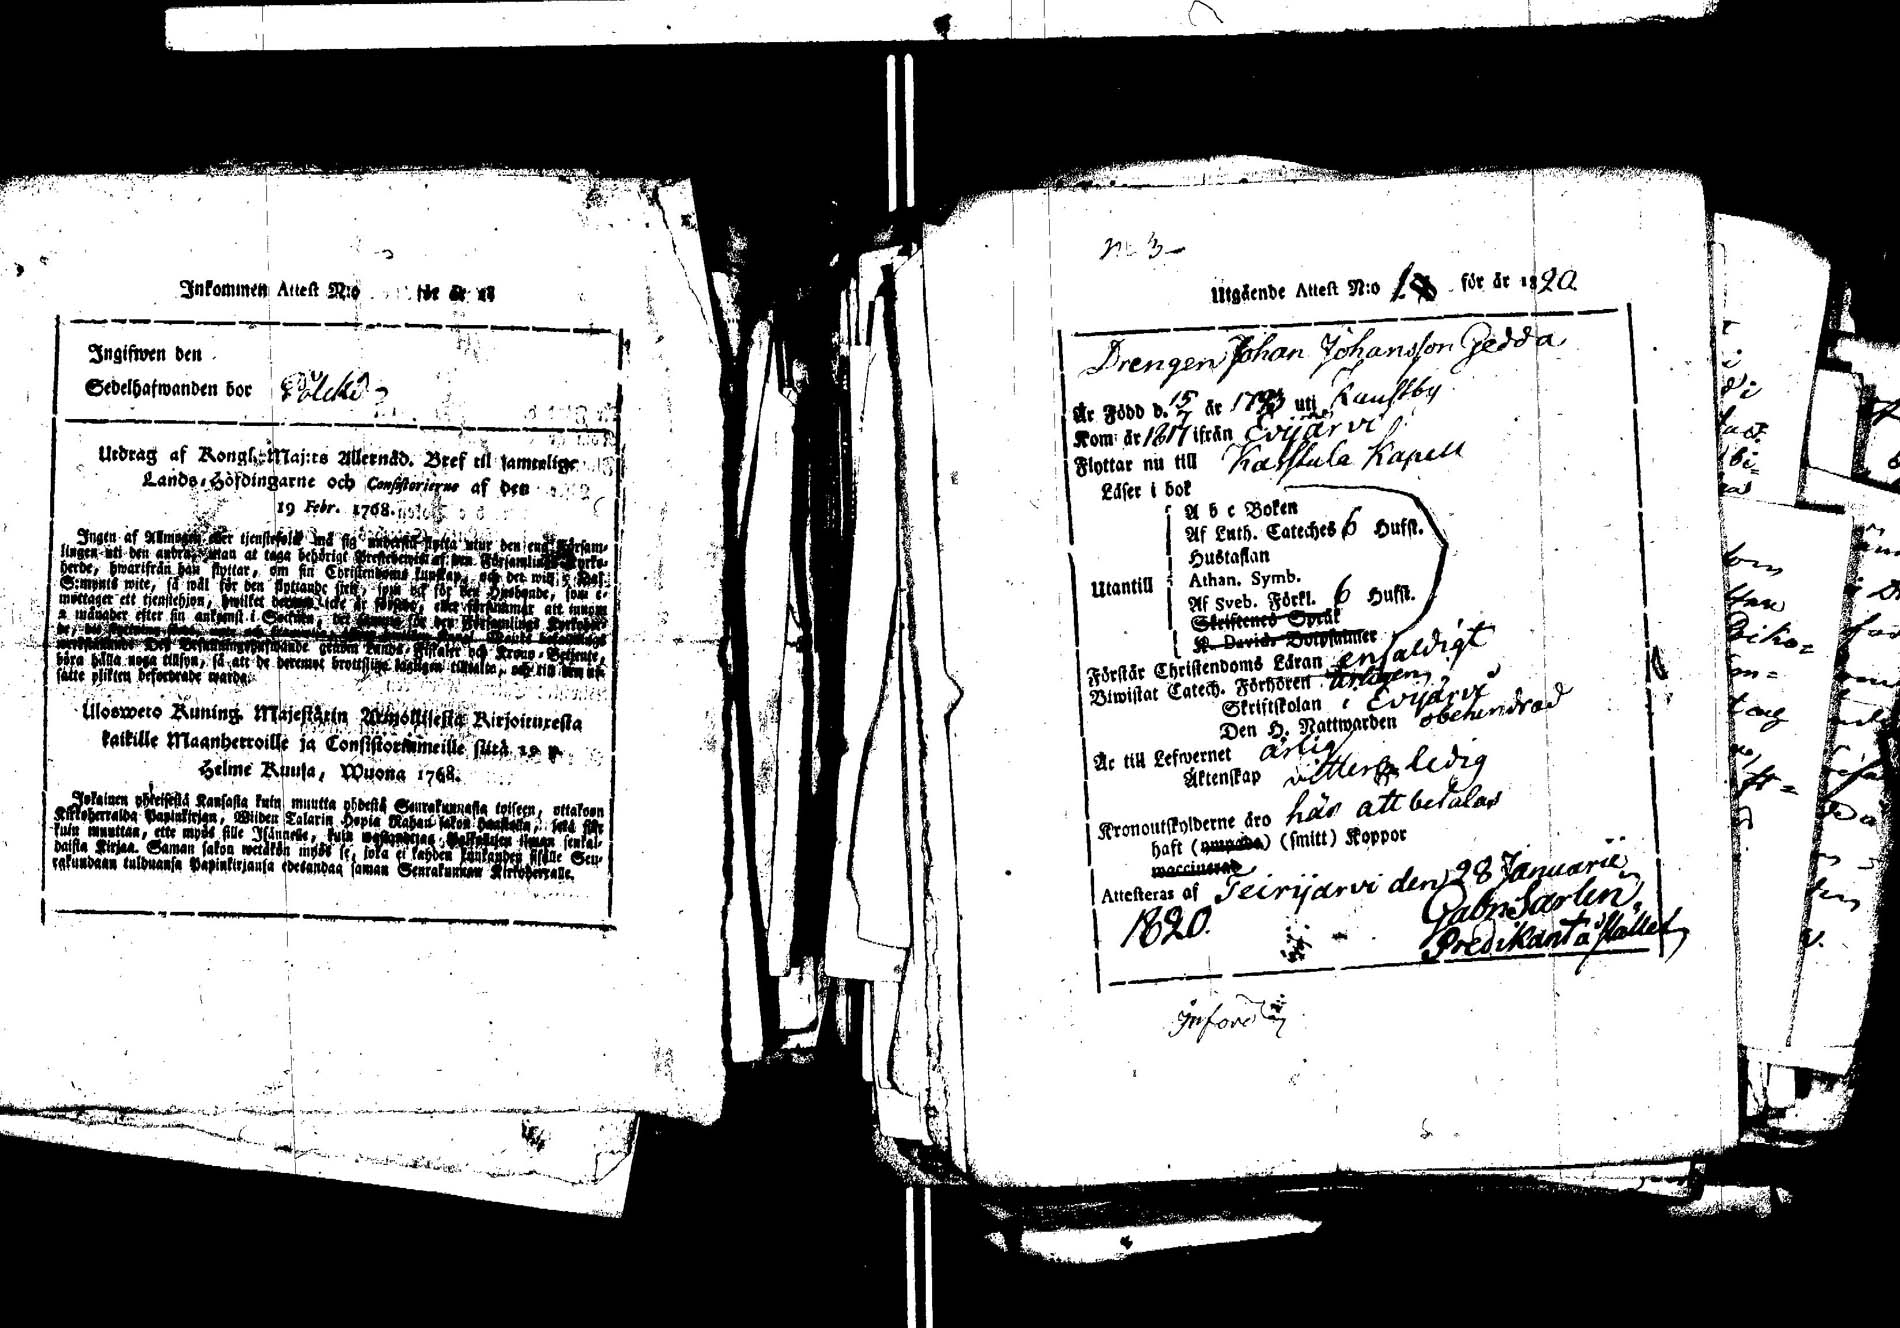 Inkommen Attest N:o för år 18
Ingifwen den
Sedelhafwanden bor
Utdrag af Kongl. Maj:ts Allernåd. Bref til samtelige
Lands-Höfdingarne och Consistorierne af den
19 Febr. 1768.
Ingen af Allmogen eller tjenstefolk må sig understå flytta utur den ena Församlingen
uti den andra, utan at taga behörigt Prestebewis af den Församlings Kyrko-
herde, hwarifrån han flyttar, om sin Christendoms kunskap, och det wid 5 Dal.
S:mynts wite, så wäl för den flyttande sielf, som ock för den Husbonde, som e-
mottager ett tjenstehjon, hwilket dermed icke är försedt, eller försummar att innom
2 månader efter sin ankomst i Socknen, det
böra hålla noga tillsyn, så att de deremot brottslige lagligen tilltalas, och till den ut-
satte plikten befordrade warda.
Ulosweto Kuning. Majestätin Armollisesta Kirjoituxesta
kaikille Maanherroille ja Consistoriumeille siitä 19 p.
Helme Kuusa, Wuona 1768.
Jokainen yhteisestä Kansasta kuin muutta yhdestä Seurakunnasta toiseen, ottakoon
Kirkoherralda Papinkirjan, Wiiden Talarin Hopia Rahan sakon haastolla, sekä sille
kuin muuttaa, ette myös sille Isännälle, kuin senkal-
daista Kirjaa. Saman sakon wetäkön myös se, joka ei kahden kuukauden sisälle Seu-
rakundaan tulduansa Papinkirjansa edesandaa saman Seurakunnan Kirkoherralle.
N:o 3
Utgående Attest N:o 18 för år 1820.
Drengen Johan Johansson Gedda
Är Född d. 15/7 år 1793 uti Kaustby
Kom år 1817 ifrån Evijärvi
Flyttar nu till Karstula Kapell
Läser i bok
A b c Boken
Af Luth. Cateches 6 Hufst.
Hustaflan
Utantill
Athan. Symb.
Af Sveb. Förkl. 6 Hufst.
Skriftenes Språk
K. Davids Botpsalmer
Förstår Christendoms Läran enfaldigt
Biwistat Catech. Förhören årligen
Skriftskolan i Evijärvi
Den H. Nattwarden obehindrad
Är till Lefwernet ärlig
Äktenskap ledig
Kronoutskylderne äro här att betalas
haft (ympade) (smitt) Koppor
waccinerad
Attesteras af Teirijärvi den 28 Januarii
1820. Gabr. Sarlin
Predikant i stället
Införd